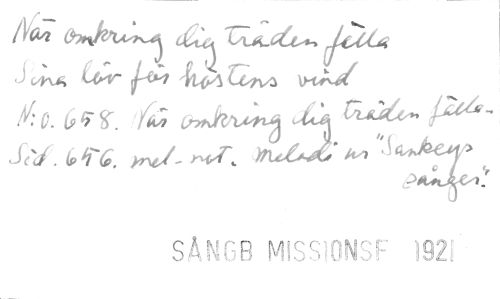 När omkring dig träden fälla
Sina löv för höstens vind
N:o. 658. När omkring dig träden fälla.
Sid. 656. mel-not. Melodi ur "Sankeys
sånger".
SÅNGB MISSIONSF 1921